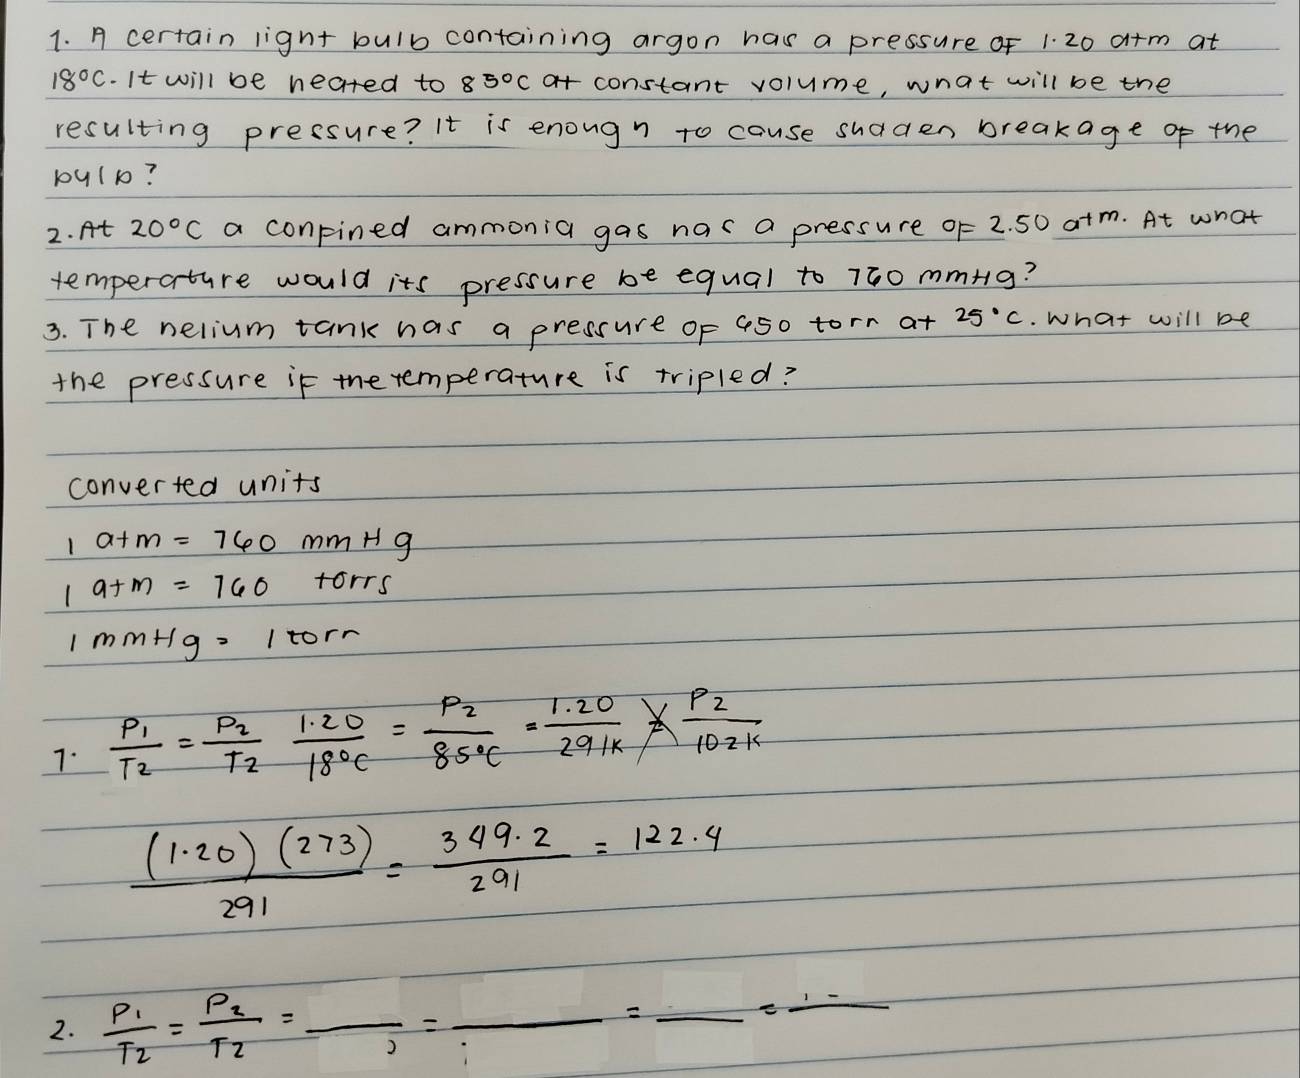 1. A certain light bulb containing argon has a pressure of 1.20 atm at
18°C. It will be heated to 85°C at constant volume, what will be the
resulting pressure? It is enough to cause sudden breakage of the
bulb?
2. At 20°C a confined ammonia gas has a pressure of 2.50 atm. At what
temperature would its pressure be equal to 760 mmHg?
3. The helium tank has a pressure of 650 torr at 25°C. What will be
the pressure if the temperature is tripled?
converted units
1 atm = 760 mmHg
1 atm = 760 torrs
1 mmHg = 1 torr
1. P1/T2 = P2/T2 1.20/18°C = P2/85°C = 1.20/291K = P2/102K
(1.20) (273)/291 = 349.2/291 = 122.4
2. P1/T2 = P2/T2 = = = =